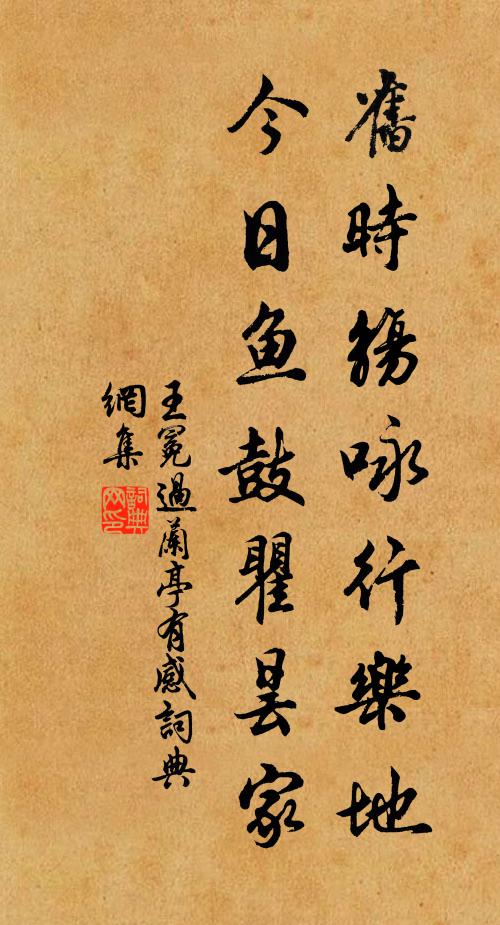 舊時觴咏行樂地
今日鱼鼓瞿昙家
王冕過蘭亭有感詞典
網集
詞典
网印